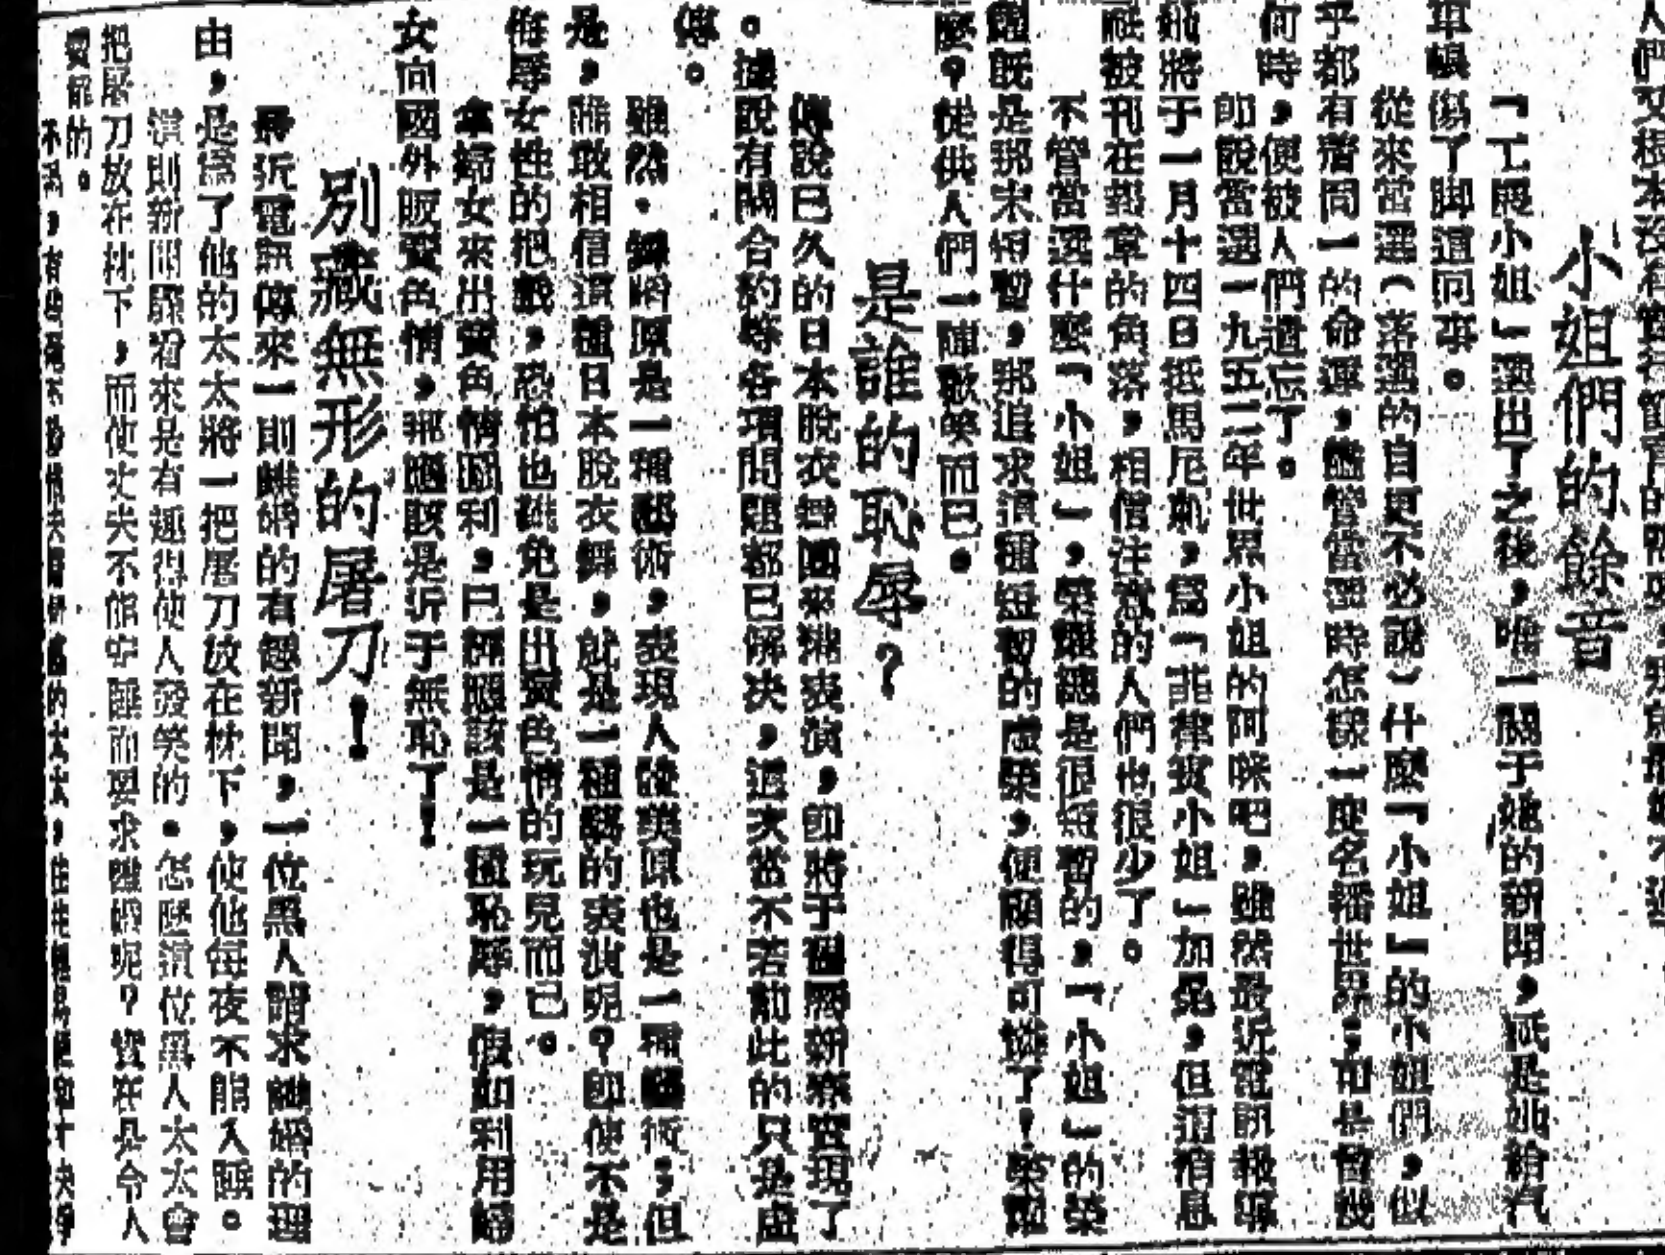 小姐們的餘音
「工展小姐」選出了之後，唯一關于她的新聞，祇是她給汽
車帳傷了脚這回事。
從來當選（落選的自更不必說）什麼「小姐」的小姐們，似
乎都有着同一的命運，儘管當選時怎樣一度名播世界；可是曾幾
何時，便被人們遺忘了。
即說當選一九五二年世界小姐的阿咪吧，雖然最近電訊報導
她將于一月十四日抵馬尼剌，爲「菲律賓小姐」加冕，但這消息
祇被刊在報章的角落，相信注意的人們也很少了。
不管當選什麼「小姐」，榮耀總是很短暫的，「小姐」的榮
耀既是那末短暫，那追求這種短暫的虛榮，便顯得可憐了！榮耀
麼？徒供人們一陣歡笑而已。
是誰的恥辱？
傳說已久的日本脫衣舞團來港表演，即將于國際新寮實現了
。據說有關合約等各項問題都已解决，這次當不若前此的只是虛
傳。
雖然，舞蹈原是一種藝術，表現人體美原也是一種藝術；但
是，誰敢相信這種日本脫衣舞，就是一種藝的表演呢？即使不是
侮辱女性的把戲，恐怕也難免是出賣色情的玩兒而已。
拿婦女來出賣色情圖利，已經應該是一種恥辱，假如利用婦
女向國外販賣色情，那應該是近于無恥了！
別藏無形的屠刀！
最近電訊傳來一則離婚的有趣新聞，一位黑人請求離婚的理
由，是爲了他的太太將一把屠刀放在枕下，使他每夜不能入睡。
這則新聞驟看來是有趣得使人發笑的。怎麼這位黑人太太會
把屠刀放在枕下，而使丈夫不能安睡而要求離婚呢？實在是令人
費解的。
不過，有些
的太太，往往